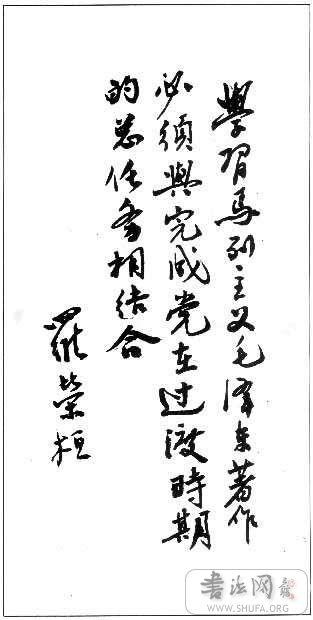 學習馬列主义毛澤东著作
必須與完成党在过渡時期
的总任务相结合
羅榮桓
书法网
WWW.SHUFA.ORG